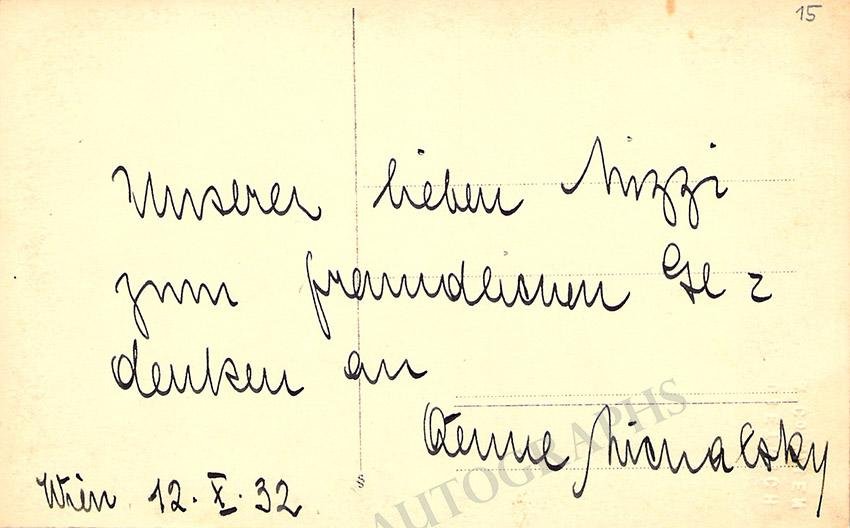 15
Unserer lieben Mizzi
zum freundlichen Ge=
denken an
Änne Michalsky
Wien 12. X. 32
AUTOGRAPHS